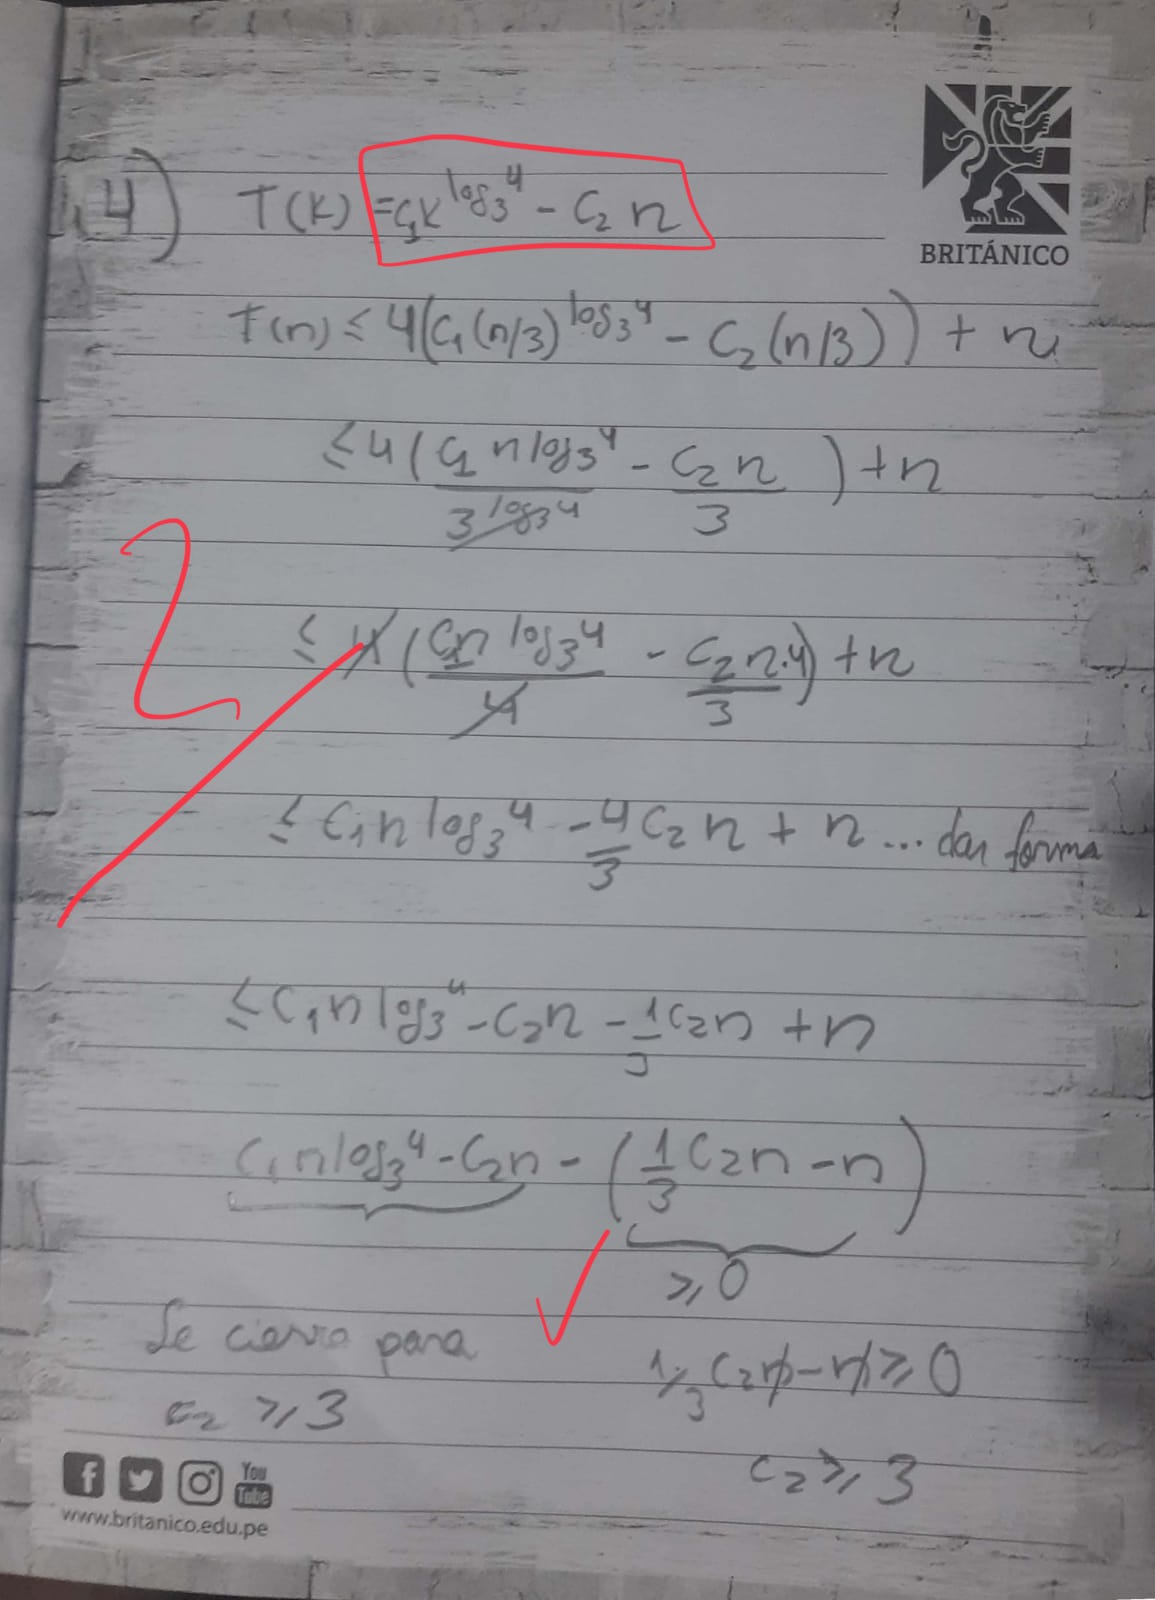 BRITÁNICO
4) T(k) = c₁k^log₃4 - c₂ n
T(n) ≤ 4(c₁(n/3)^log₃4 - c₂(n/3)) + n
≤ 4(c₁ n^log₃4 / 3^log₃4 - c₂n / 3) + n
2
≤ 4(c₁n^log₃4 / 4 - c₂n.4 / 3) + n
≤ c₁n^log₃4 - 4/3 c₂n + n ... dar forma
≤ c₁n^log₃4 - c₂n - 1/3 c₂n + n
c₁n^log₃4 - c₂n - (1/3 c₂n - n)
≥ 0
Se cierra para
1/3 c₂n - n ≥ 0
c₂ ≥ 3
c₂ ≥ 3
You
Tube
www.britanico.edu.pe